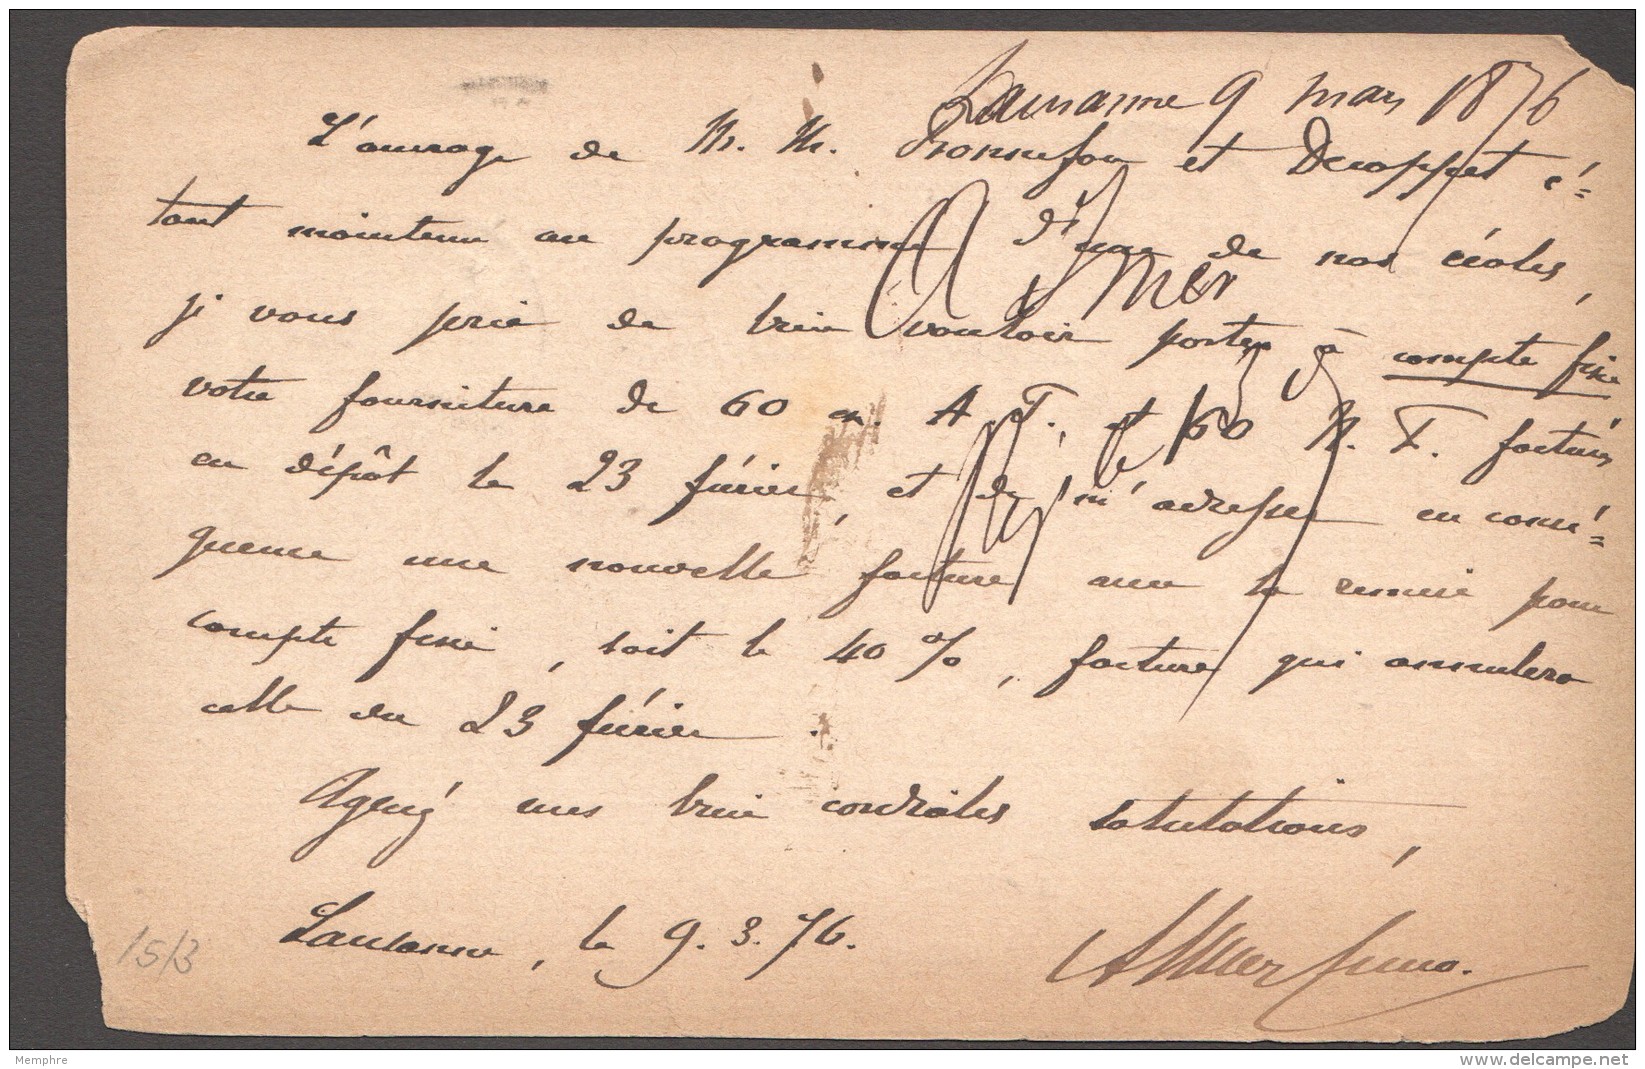 Lausanne 9 mars 1876
L'ouvrage de M. M. Bonnefon et Décoppet é=
tant maintenu au programme d'une de nos écoles,
je vous prie de bien vouloir porter à compte fixe
votre fourniture de 60 A. T., et 160 N. T. facturés
en dépôt le 23 février, et de m'adresser en consé=
quence une nouvelle facture avec la remise pour
compte fixe, soit le 40 %, facture qui annulera
celle du 23 février.
Agréez mes bien cordiales salutations,
Lausanne, le 9.3.76.
15/3
Memphre
www.delcampe.net